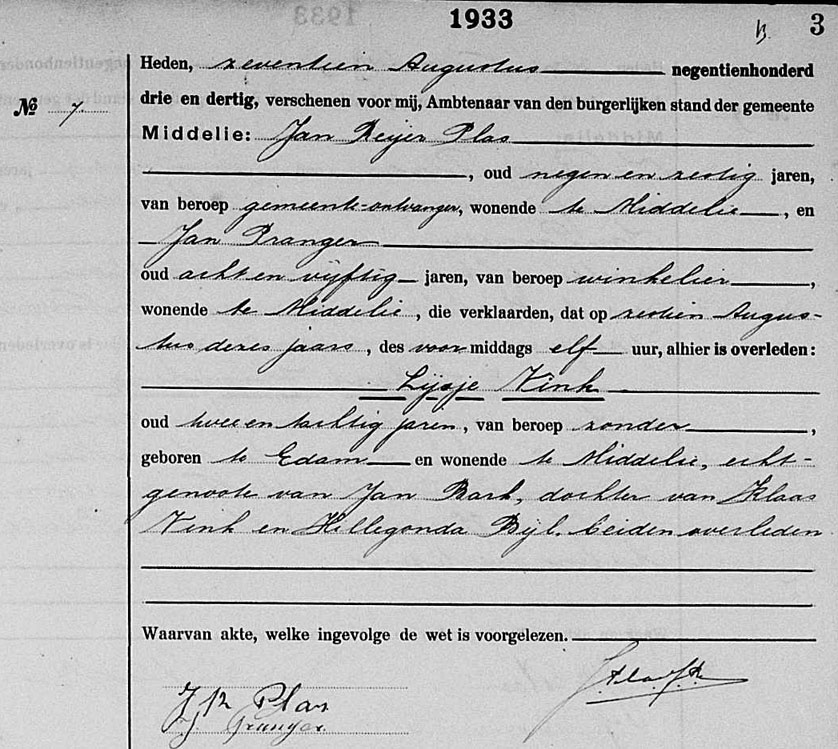 1933 3
Heden, zeventien Augustus negentienhonderd
drie en dertig, verschenen voor mij, Ambtenaar van den burgerlijken stand der gemeente
No 7.
Middelie: Jan Reijer Plas
, oud negen en zestig jaren,
van beroep gemeente-ontvanger, wonende te Middelie, en
Jan Pranger
oud acht en vijftig jaren, van beroep winkelier,
wonende te Middelie, die verklaarden, dat op zestien Augus-
tus dezes jaars, des voormiddags elf uur, alhier is overleden:
Lijsje Kink
oud twee en tachtig jaren, van beroep zonder,
geboren te Edam en wonende te Middelie, echt-
genoote van Jan Bark, dochter van Klaas
Kink en Hillegonda Bijl, beiden overleden
Waarvan akte, welke ingevolge de wet is voorgelezen.
J R Plas
J. Pranger.